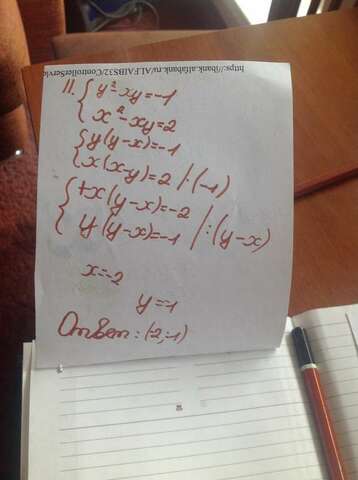 https://ibank.alfabank.ru/ALFAIBS32/ControllerServlet
11. { y²-xy=-1
x²-xy=2
{ y(y-x)=-1
x(x-y)=2 /:(-1)
{ +x(y-x)=-2
y(y-x)=-1 /:(y-x)
x=-2
y=-1
Ответ: (-2;-1)